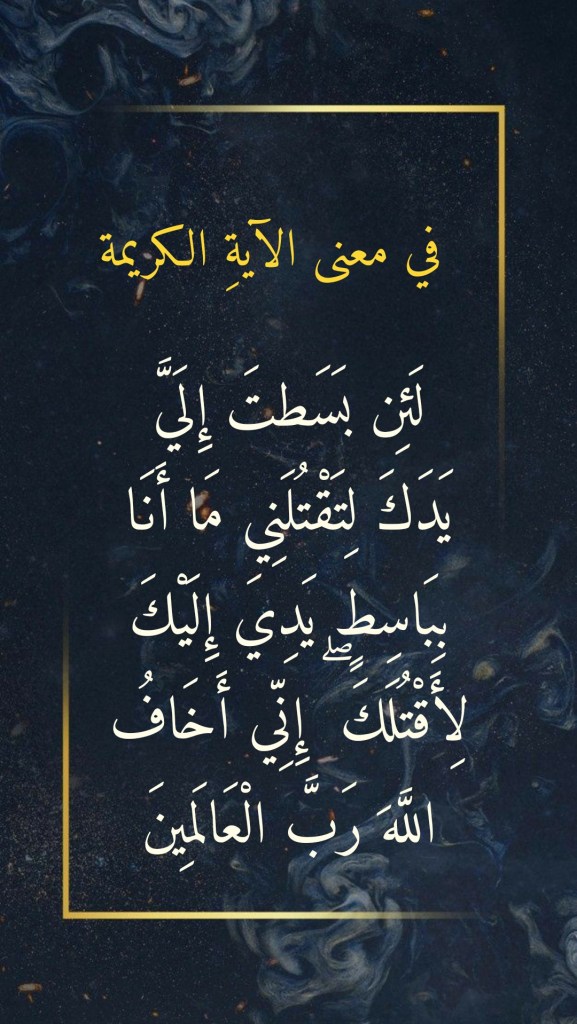 في معنى الآيةِ الكريمة
لَئِن بَسَطتَ إِلَيَّ
يَدَكَ لِتَقْتُلَنِي مَا أَنَا
بِبَاسِطٍ يَدِيَ إِلَيْكَ
لِأَقْتُلَكَ ۖ إِنِّي أَخَافُ
اللَّهَ رَبَّ الْعَالَمِينَ